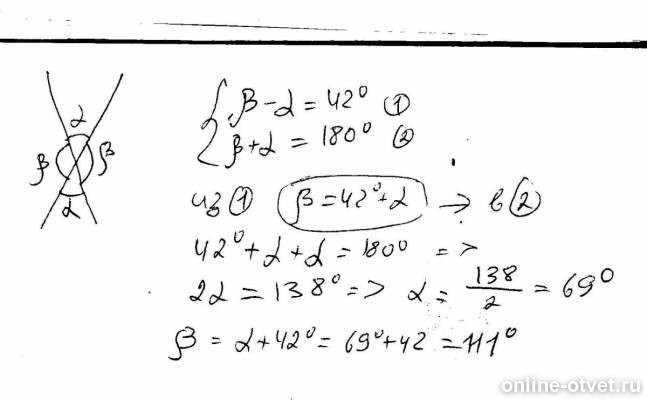 α
β β
α
β-α=42° ①
β+α=180° ②
из ① β=42°+α → в ②
42°+α+α=180° =>
2α=138° => α=138/2=69°
β=α+42°=69°+42=111°
online-otvet.ru